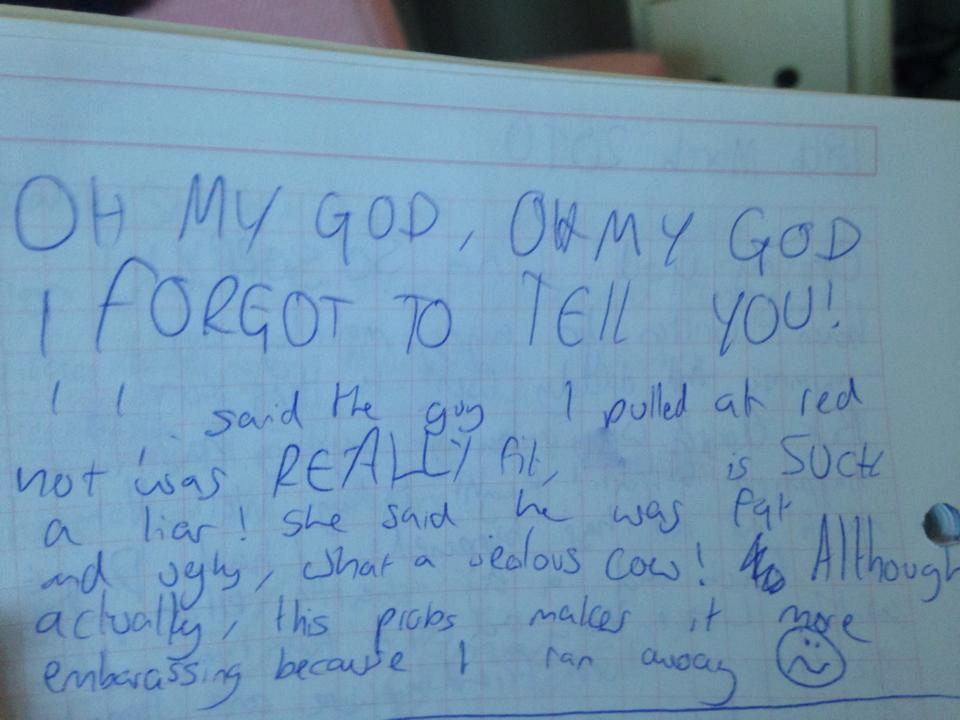 OH MY GOD, OH MY GOD
I FORGOT TO TELL YOU!
said the guy I pulled at red
hot was REALLY fit, is SUCH
a liar! She said he was fat
and ugly, what a jealous cow! Although
actually, this probs makes it more
embarassing because I ran away